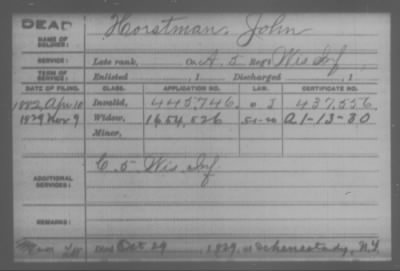 DEAD
NAME OF SOLDIER: Horstman, John
SERVICE: Late rank, Co. A, 5 Reg't Wis Inf,
TERM OF SERVICE: Enlisted , 1 Discharged , 1
DATE OF FILING. CLASS. APPLICATION NO. LAW. CERTIFICATE NO.
1882, Apr 10 Invalid, 445,746 J 437,556
1829 Nov 9 Widow, 1654,526 A1-13-30
Minor,
ADDITIONAL SERVICES: C. 5 Wis Inf
REMARKS:
Died Oct 29, 1829, at Schenectady, N.Y.